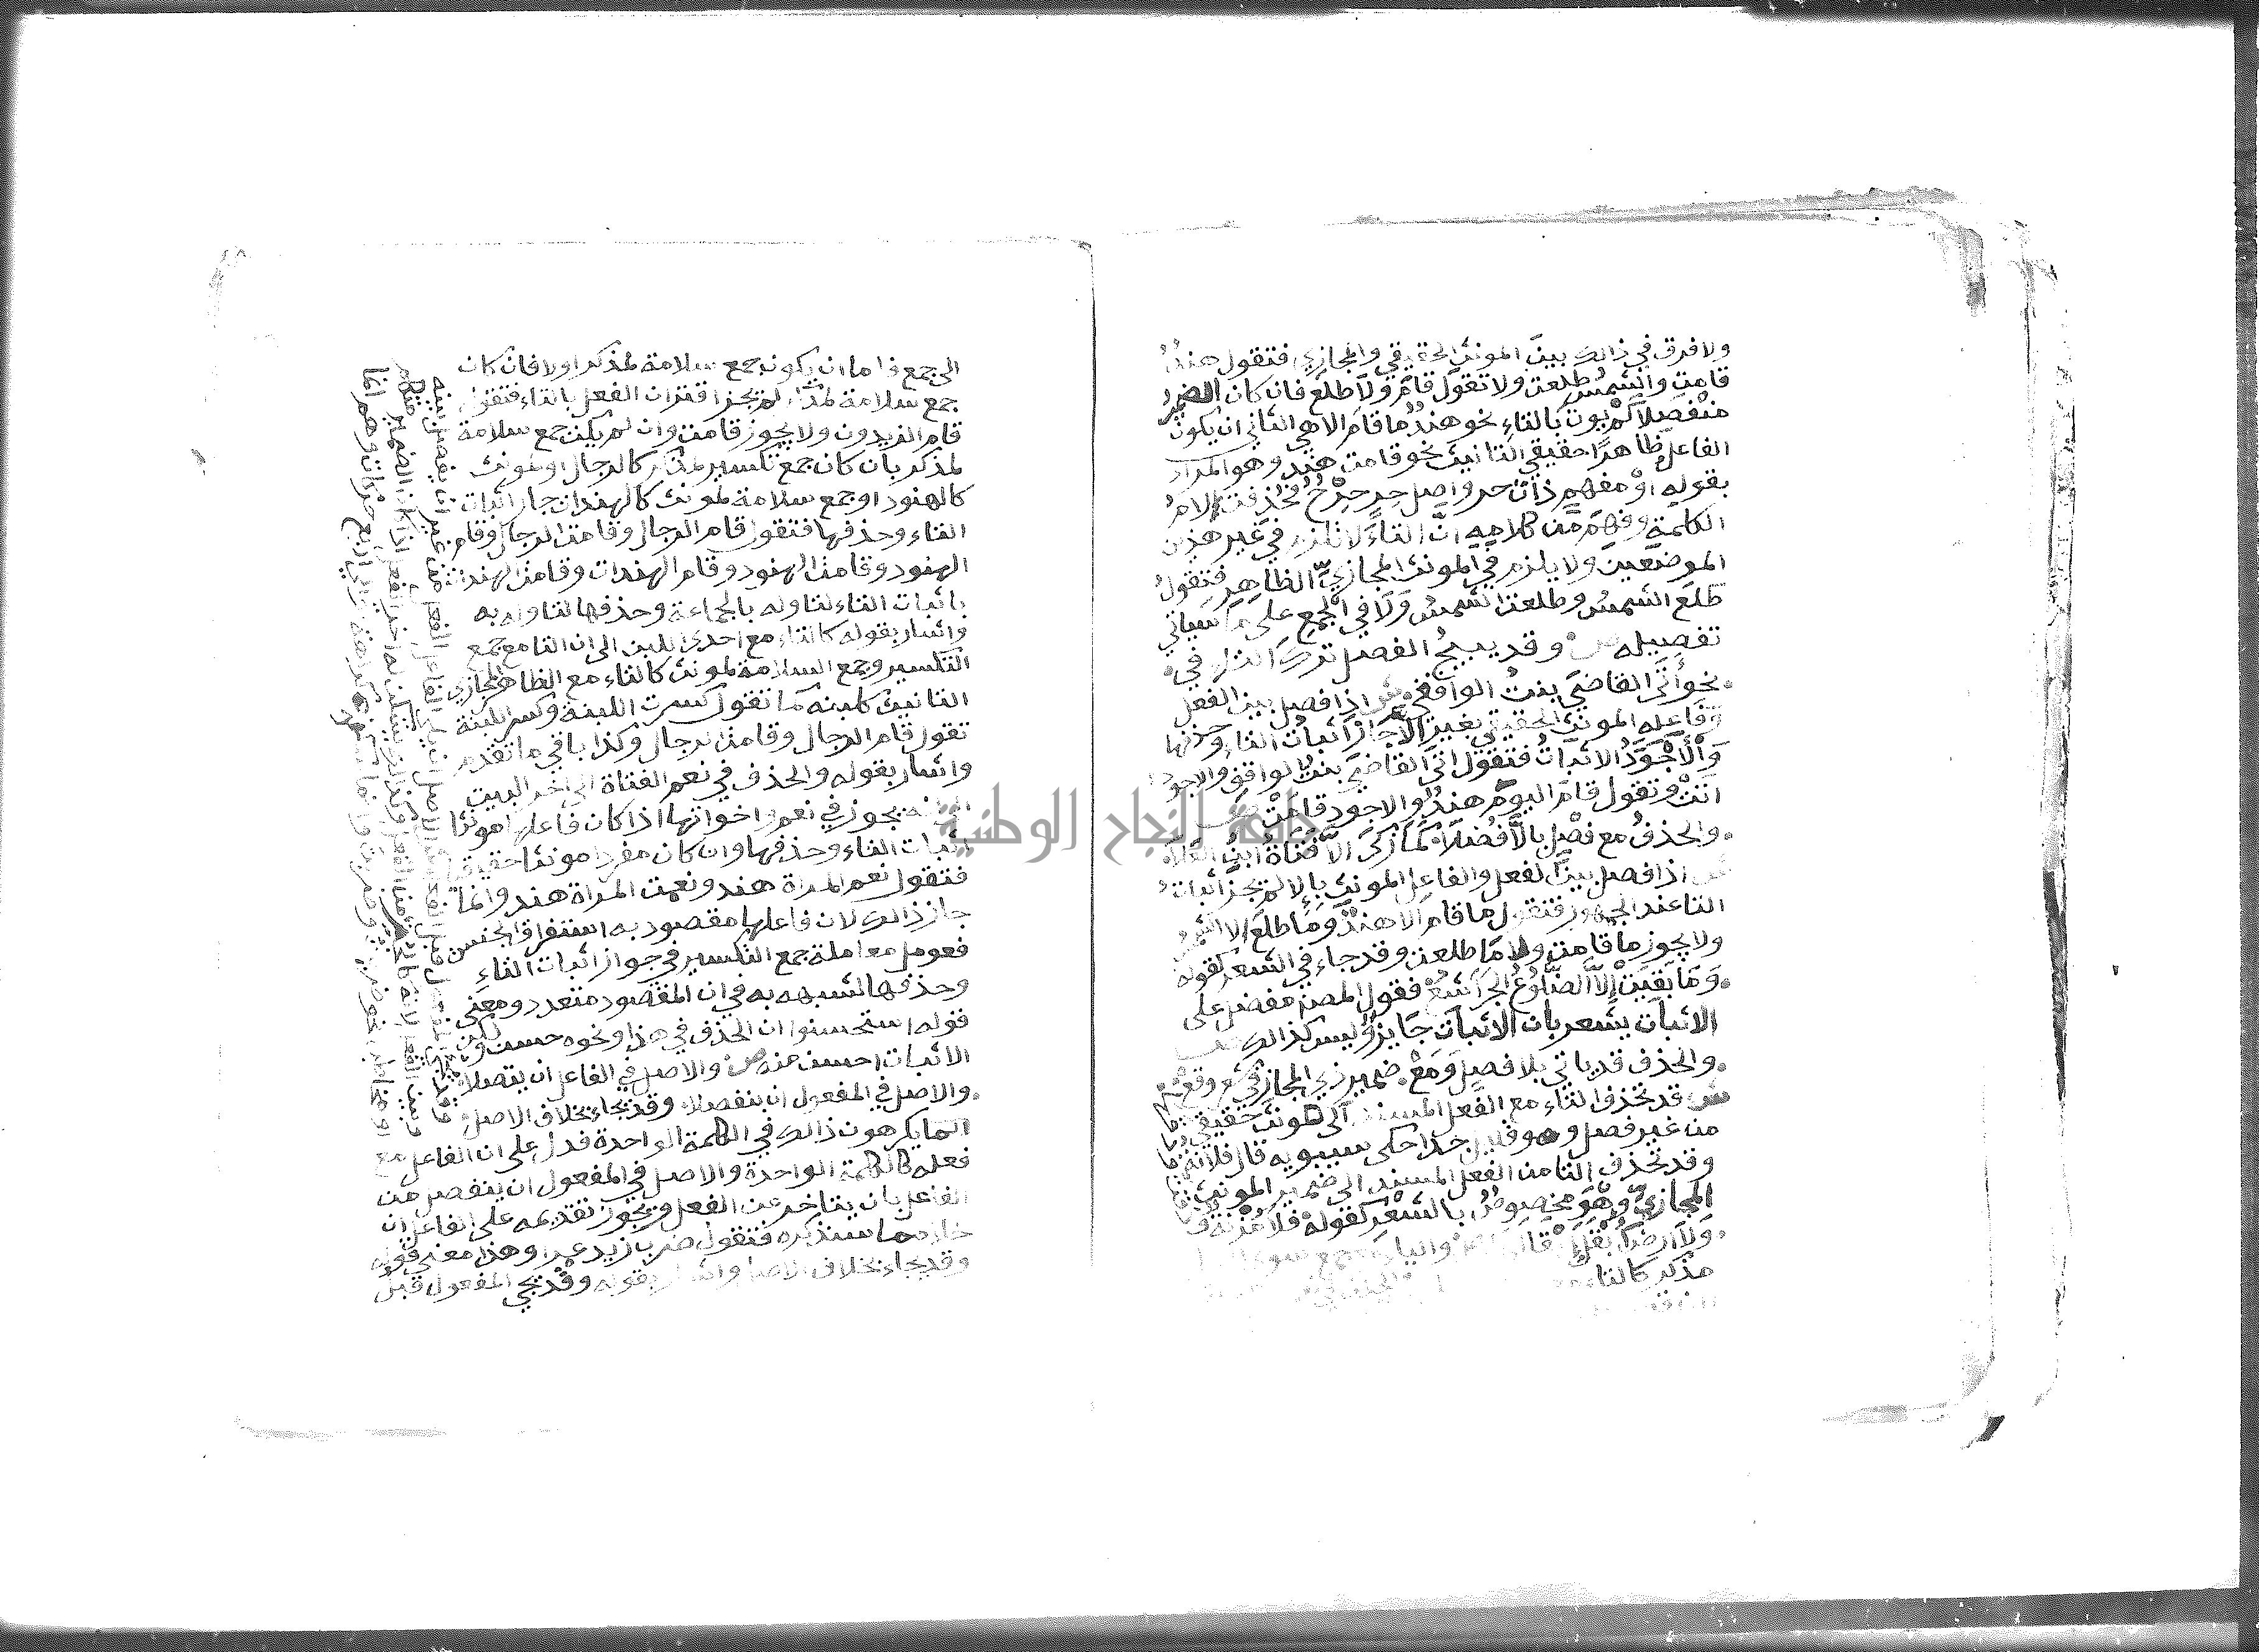 ولا فرق في ذالك بين المونث الحقيقي والمجازي فتقول هندٌ
قامت والشمس طلعت ولا تقول قام ولا طلع فان كان الضمير
منفصلا لم يوت بالتاء نحو هندٌ ما قام الا هي الثاني ان يكون
الفاعل ظاهرًا حقيقي التانيث نحو قامت هند وهو المراد
بقوله او مفهم ذات حر واصل حِرٍ حِرْحٌ فحُذفت لامُ
الكلمة وفهم من كلامه ان التاءَ لا تلزم في غير هذين
الموضعين ولا يلزم في المونث المجازيِّ الظاهر فتقولُ
طلع الشمسُ وطلعت الشمسُ ولا في الجمع على ما سياتي
تفصيله ص وقد يبيح الفصل تركَ التاء في
نحو أتى القاضيَ بنتُ الواقفِ ش اذا فصل بين الفعل
وفاعله المونث الحقيقي بغير الا جاز اثبات التاء وحذفها
والاجود الاثبات فتقول اتى القاضيَ بنتُ الواقف والاجود
اتتْ وتقول قام اليوم هندٌ والاجود قامتْ ص
والحذفُ مع فصْلٍ بالَّا فُضّلا كما زكى الَّا فتاةُ ابنِ العلا
ش اذا فصل بين الفعل والفاعل المونث بإلا لم يجز اثبات
التا عند الجمهور فتقول ما قام الا هندٌ وما طلع الا الشمس
ولا يجوز ما قامت ولا ما طلعت وقد جاء في الشعر كقوله
وما بَقِيَتْ إلَّا الضلوعُ الجراشعُ فقول المصن مفضل على
الاثبات يشعر بان الاثبات جايز وليس كذالك ص
والحذف قد ياتي بلا فصلٍ ومَعْ ضمير ذي المجاز في شعر وقعْ
ش قد تحذف التاء مع الفعل المسند الى مونث حقيقي
من غير فصل وهو قليل جدا حكى سيبويه قال فلانةُ
وقد تحذف التا من الفعل المسند الى ضمير المونث
المجازيِّ وهْوَ مخصوصٌ بالشعْرِ كقوله فلا مُزنةٌ
ولا ارضَ ابْقَلَ والتاء مع جمع سوى
مذكر كالتاء
الى جمع فاما ان يكون جمع سلامة لمذكر او لا فان كان
جمع سلامة لمذكر لم يجز اقتران الفعل بالتاء فتقول
قام الزيدون ولا يجوز قامت وان لم يكن جمع سلامة
لمذكر بان كان جمع تكسير لمذكر كالرجال او لمونث
كالهنود او جمع سلامة لمونث كالهندات جاز اثبات
التاء وحذفها فتقول قام الرجال وقامت الرجال وقام
الهنود وقامت الهنود وقام الهندات وقامت الهندات
باثبات التاء لتاوله بالجماعة وحذفها لتاوله به
واشار بقوله كالتاء مع احدى اللبن الى ان التا مع جمع
التكسير وجمع السلامة لمونث كالتاء مع الظاهر المجازي
التانيث كلبنه كما تقول كسرت اللبنة وكسر اللبنة
تقول قام الرجال وقامت الرجال وكذا باقي ما تقدم
واشار بقوله والحذف في نعم الفتاة الى اخر البيت
الى انه يجوز في نعم واخواتها اذا كان فاعلها مونثا
اثبات التاء وحذفها وان كان مفردا مونثا حقيقيا
فتقول نعم المراة هند ونعمت المراة هند وانما
جاز ذالك لان فاعلها مقصود به استغراق الجنس
فعومل معاملة جمع التكسير في جواز اثبات التاء
وحذفها لشبهه به في ان المقصود متعدد ومعنى
قوله استحسنوا ان الحذف في هذا ونحوه حسن ولكن
الاثبات احسن منه ص والاصل في الفاعل ان يتصلا
والاصل في المفعول ان ينفصلا وقد يجاء بخلاف الاصل
انما يكرهون ذالك في الكلمة الواحدة فدل على ان الفاعل مع
فعله كالكلمة الواحدة والاصل في المفعول ان ينفصل من
الفاعل بان يتاخر عن الفعل ويجوز تقديمه على الفاعل ان
خلا مما سنذكره فتقول ضرب زيد عمرا وهذا معنى قوله
وقد يجاء بخلاف الاصل واشار بقوله وقد يجي المفعول قبل
جامعة النجاح الوطنية